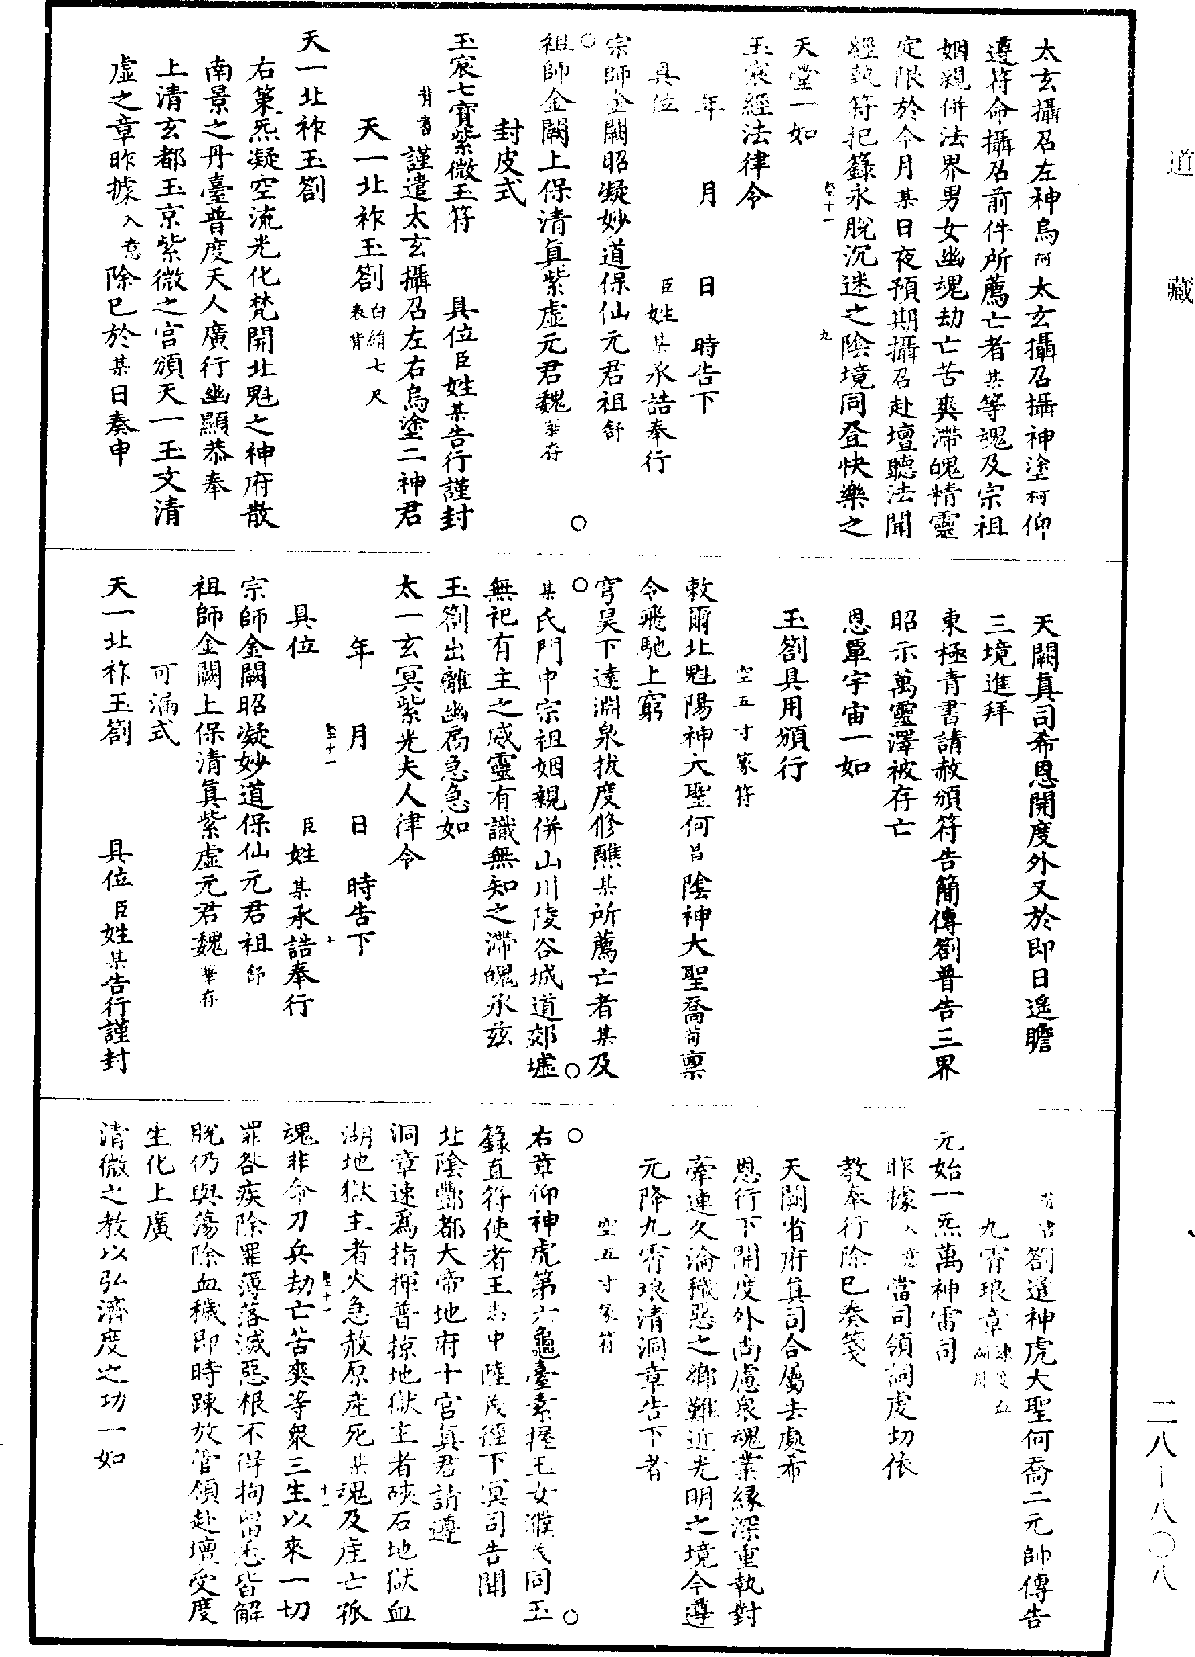 道藏
二八—八〇八
太玄攝召左神烏阿太玄攝召攝神塗柯仰
遵符命攝召前件所薦亡者某等魂及宗祖
姻親併法界男女幽魂劫亡苦爽滯魄精靈
定限於今月某日夜預期攝召赴壇聽法聞
經執符把籙永脫沉迷之陰境同登快樂之
天堂一如
玉宸經法律令
年 月 日 時告下
具位 臣姓某承誥奉行
宗師金闕昭凝妙道保仙元君祖舒
祖師金闕上保清真紫虛元君魏華存
封皮式
玉宸七寶紫微玉符 具位臣姓某告行謹封
背書 謹遣太玄攝召左右烏塗二神君
天一北祚玉劄白絹七尺表背
天一北祚玉劄
右築炁凝空流光化梵開北魁之神府散
南景之丹臺普度天人廣行幽顯恭奉
上清玄都玉京紫微之宮頒天一玉文清
虛之章昨據入意除已於某日奏申
天闕真司希恩開度外又於即日遙瞻
三境進拜
東極青書請赦頒符告簡傳劄普告三界
昭示萬靈澤被存亡
恩覃宇宙一如
玉劄具用頒行
空五寸篆符
敕爾北魁陽神大聖何昌陰神大聖喬苟稟
令飛馳上窮
穹昊下達淵泉拔度修醮某所薦亡者某及
某氏門中宗祖姻親併山川陵谷城道郊墟
無祀有主之威靈有識無知之滯魄承茲
玉劄出離幽局急急如
太一玄冥紫光夫人律令
年 月 日 時告下
具位 臣姓某承誥奉行
宗師金闕昭凝妙道保仙元君祖舒
祖師金闕上保清真紫虛元君魏華存
可漏式
天一北祚玉劄 具位臣姓某告行謹封
背書劄遣神虎大聖何喬二元帥傳告
九霄琅章
元始一炁萬神雷司
昨據入意當司領詞虔切依
教奉行除已奏箋
天闕省府真司合屬去處希
恩行下開度外尚慮泉魂業緣深重執對
牽連久淪穢惡之鄉難近光明之境今遵
元降九霄琅清洞章告下者
空五寸篆符
右章仰神虎第六龜臺素握玉女濮氏同玉
籙直符使者王志中陸茂徑下冥司告聞
北陰酆都大帝地府十宮真君請遵
洞章速為指揮普掠地獄主者硤石地獄血
湖地獄主者火急赦原產死某魂及産亡孤
魂非命刀兵劫亡苦爽等眾三生以來一切
罪咎疾除罪薄落滅惡根不得拘留悉皆解
脫仍與蕩除血穢即時疎放管領赴壇受度
生化上廣
清微之教以弘濟度之功一如